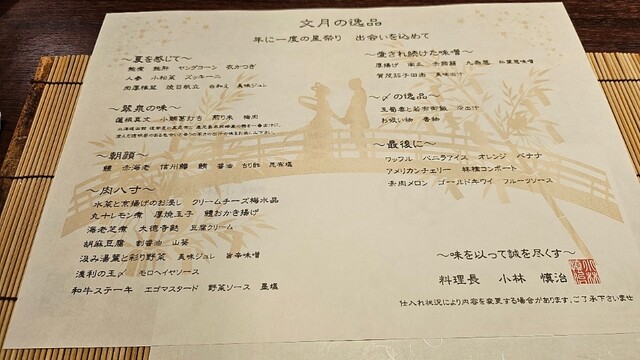 文月の逸品
年に一度の星祭り 出会いを込めて
〜夏を感じて〜
鮑煮 鮑肝 ヤングコーン 衣かつぎ
人参 小松菜 ズッキーニ
肉厚椎茸 焼目帆立 白和え 美味ジュレ
〜翠泉の味〜
蓮根真丈 小鯛葛打ち 煎り米 梅肉
〜朝頭〜
鱧 赤海老 信州鱒 鮪 醤油 ちり酢 昆布塩
〜肉八寸〜
水菜と京揚げのお浸し クリームチーズ梅水晶
丸十レモン煮 厚焼玉子 鱧おかき揚げ
海老芝煮 大徳寺麩 豆腐クリーム
胡麻豆腐 割醤油 山葵
汲み湯葉と彩り野菜 美味ジュレ 旨辛味噌
浅利の玉〆 モロヘイヤソース
和牛ステーキ エゴマスタード 野菜ソース 藻塩
〜愛され続けた味噌〜
厚揚げ 南瓜
賀茂茄子田楽 美味出汁
〜〆の逸品〜
玉蜀黍と若布御飯
お吸い物 香物
〜最後に〜
ワッフル バニラアイス オレンジ バナナ
アメリカンチェリー 林檎コンポート
赤肉メロン ゴールドキウイ フルーツソース
〜味を以って誠を尽くす〜
料理長 小林 慎治
仕入れ状況により内容を変更する場合があります、ご了承下さいませ